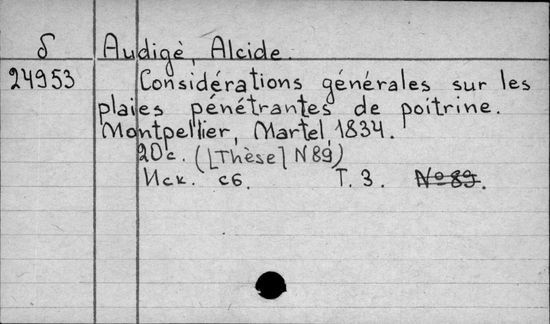 δ Audigé, Alcide.
24953 Considérations générales sur les
plaies pénétrantes de poitrine.
Montpellier, Martel, 1834.
20 c. ([Thèse] N 89)
Иск. сб. Т. 3. № 89.